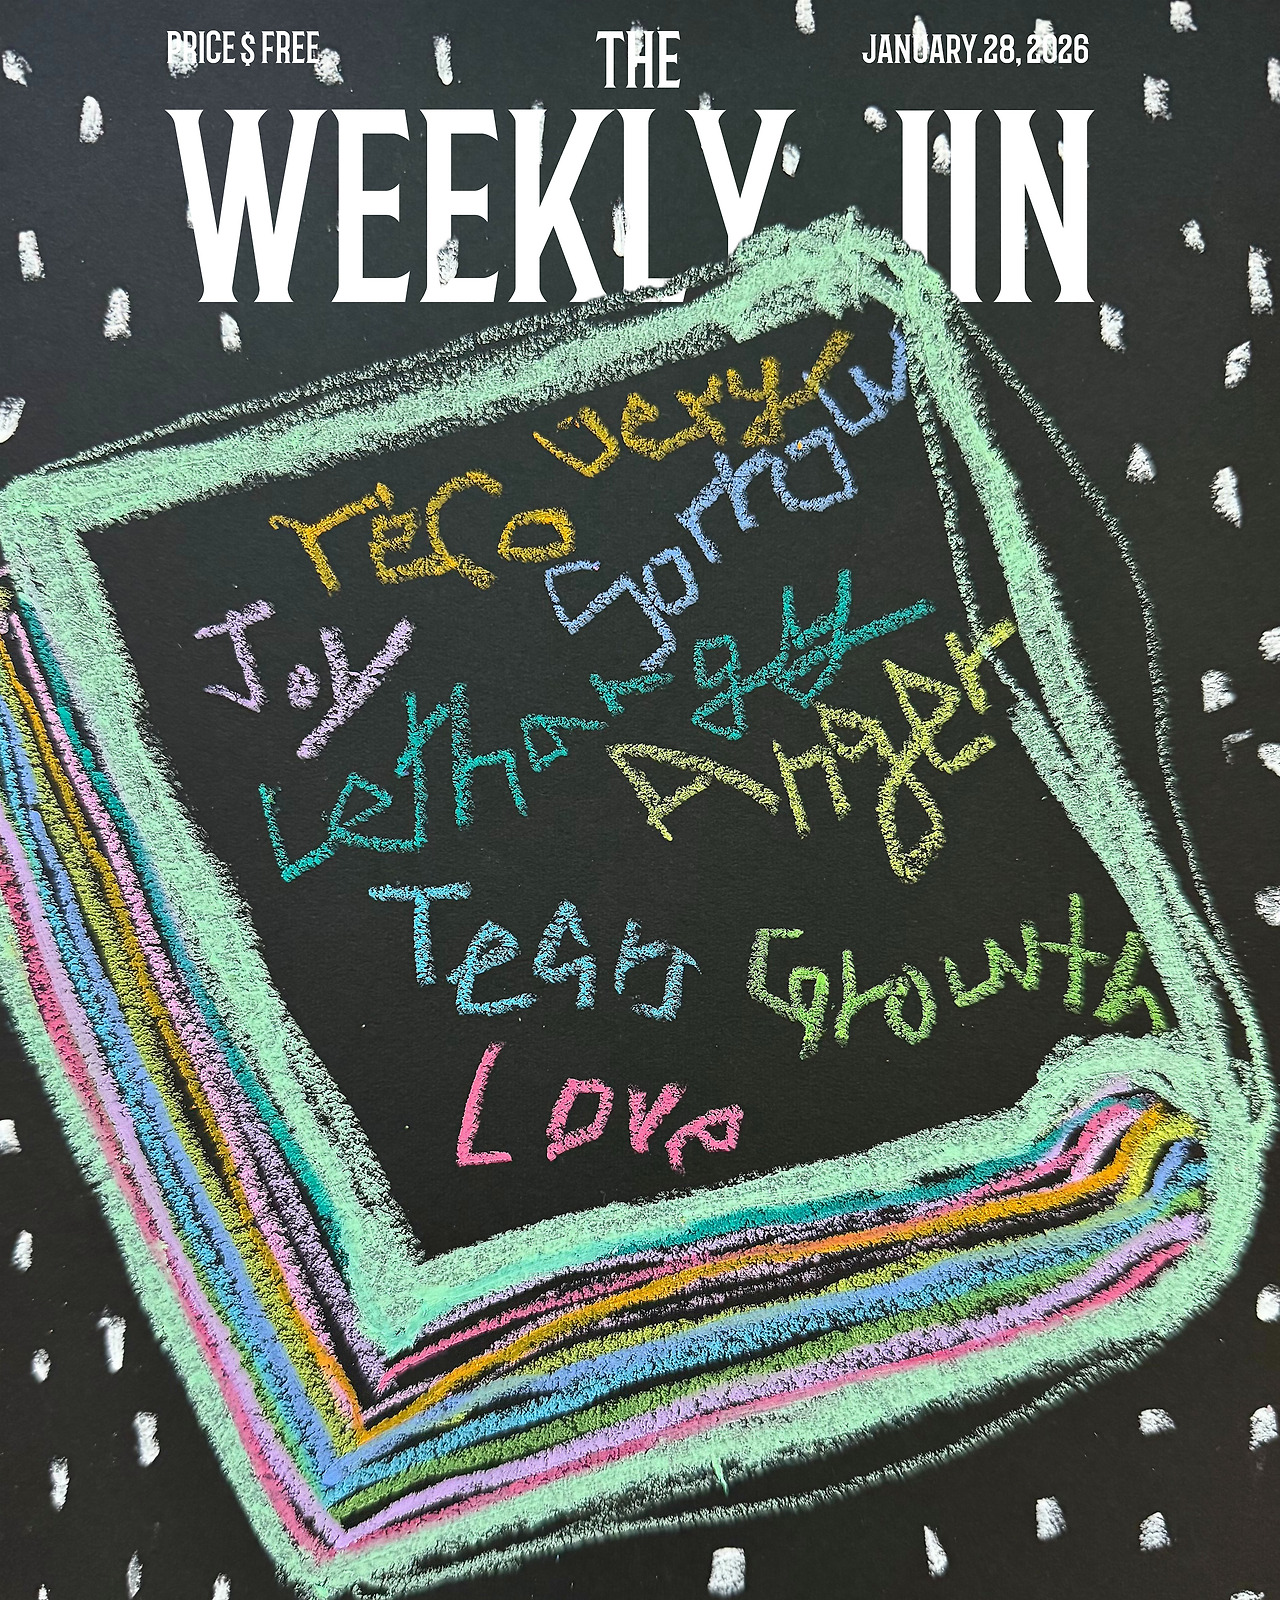 PRICE $ FREE
THE
JANUARY.28, 2026
WEEKLY JIN
recovery
Sorrow
Joy
Lethargy
Anger
Tears
Growth
Love